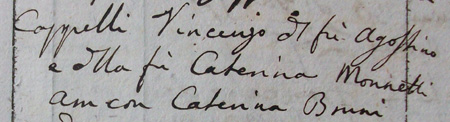 Cappelli Vincenzo di fù Agostino
e della fù Caterina Monnetti
am con Caterina Bruni